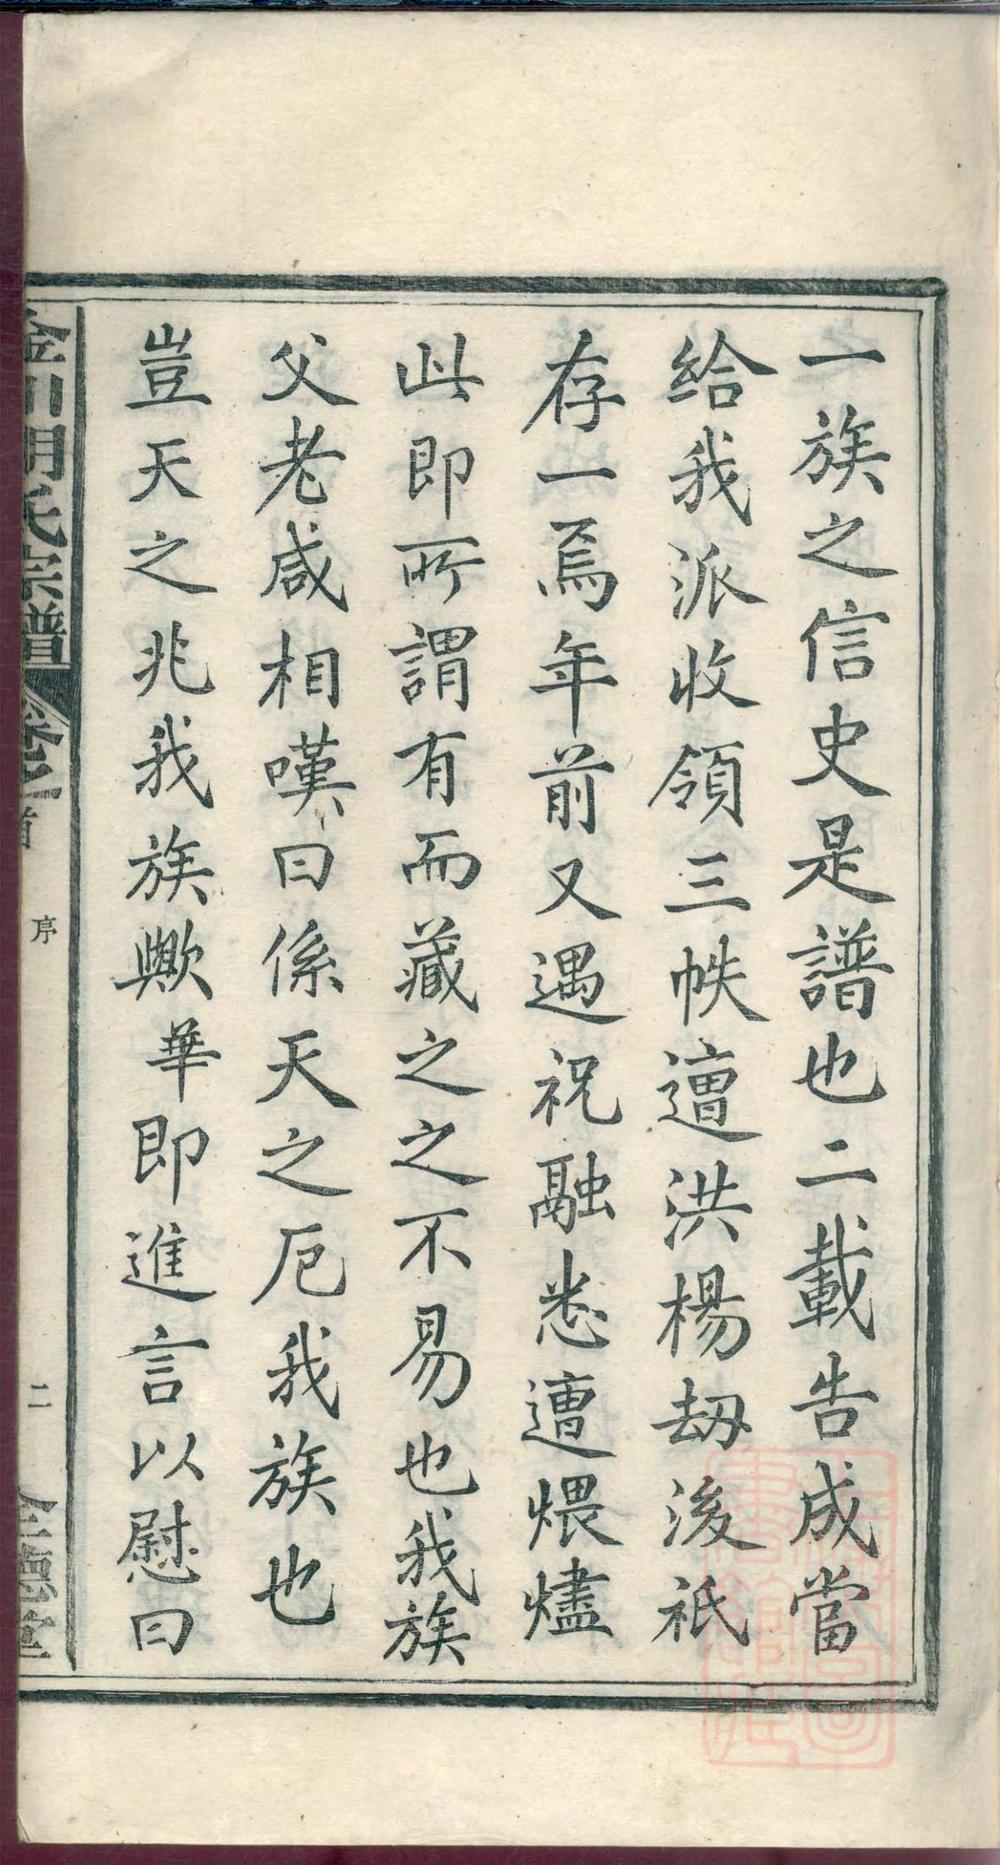 一族之信史是譜也二載告成當
給我派收領三帙遭洪楊刼後祇
存一焉年前又遇祝融悉遭煨燼
此即所謂有而藏之之不易也我族
父老咸相嘆曰係天之厄我族也
豈天之兆我族歟華即進言以慰曰
金川胡氏宗譜
卷之首
序
二